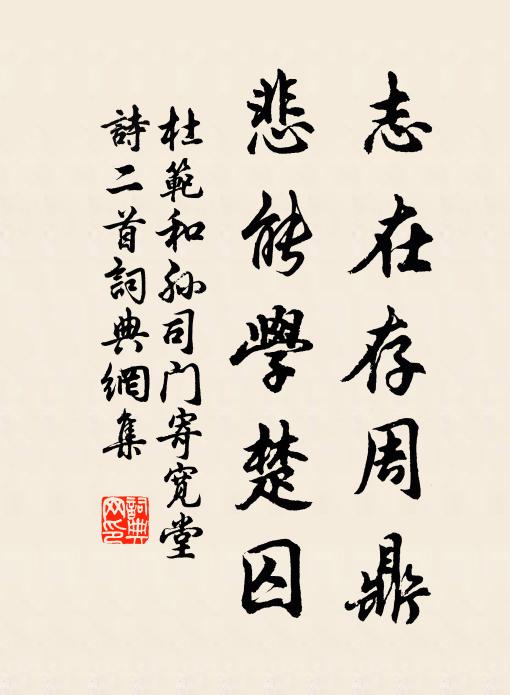 志在存周鼎
悲能學楚囚
杜範和孙司门寄宽堂
詩二首詞典網集
詞典
网印